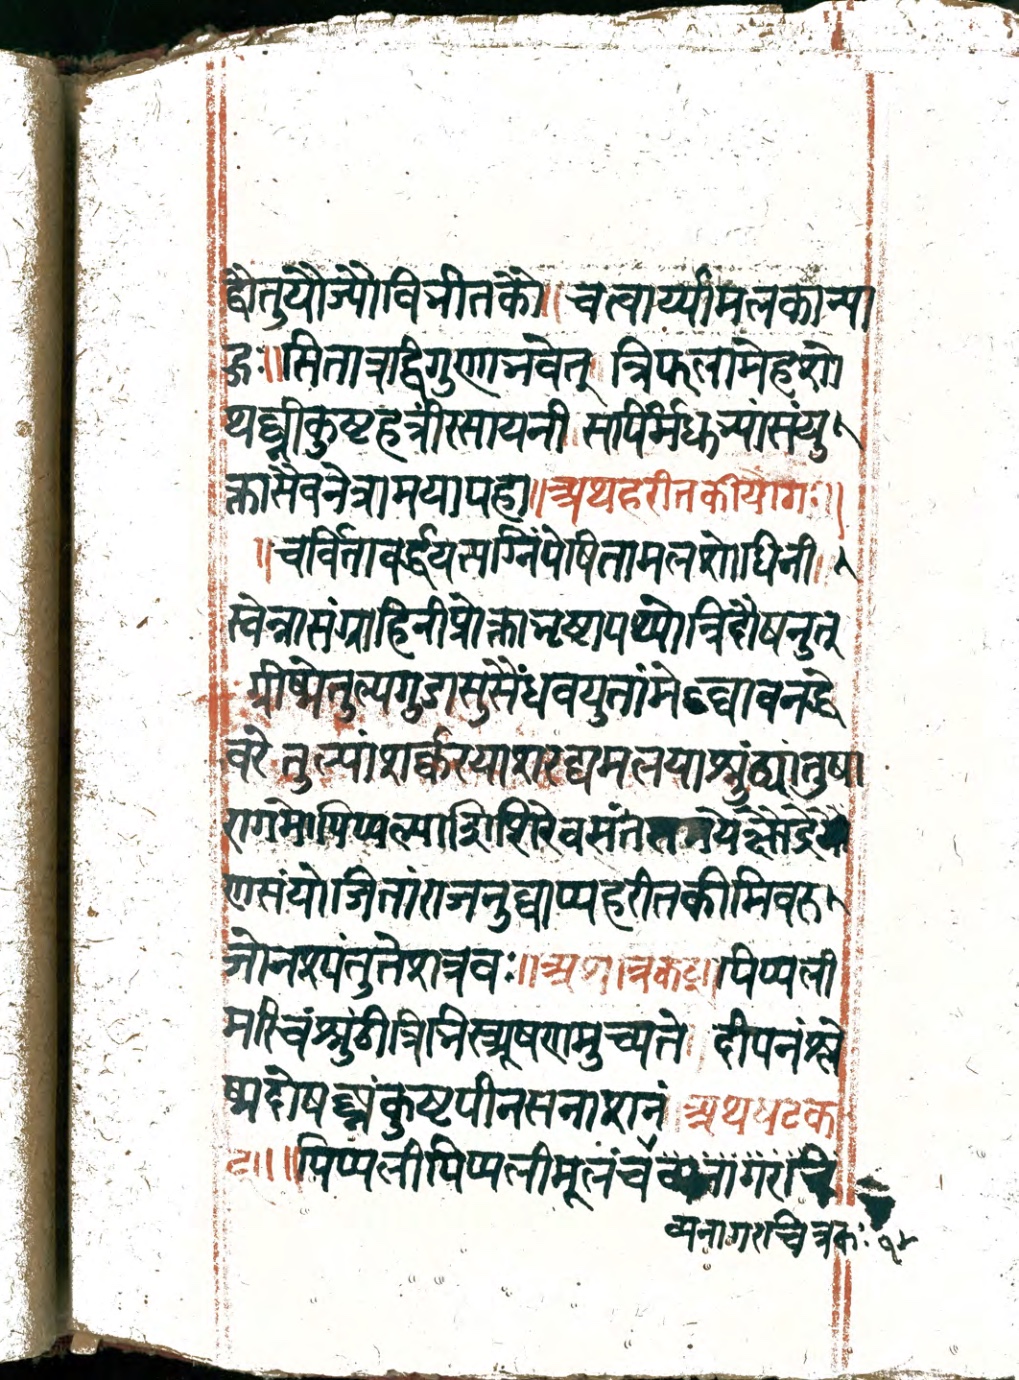 द्वौतुयौज्यौविभीतकौ॥ चत्वार्य्यामलकान्या
हुः॥सितात्राद्विगुणाभवेत् त्रिफलामेहशो
थघ्नीकुष्टहंत्रीरसायनी सर्पिर्मधुभ्यांसंयु
क्तासैवनेत्रामयापहा॥अथहरीतकीयोगः॥
॥चर्वितावर्द्धयसग्निंपेषितामलशोधिनी।
स्वेन्नासंग्राहिनीप्रोक्ताभृष्टापथ्योत्रिदौषनुत्
ग्रीष्मेतुल्यगुडासुसैंधवयुतांमेऽघ्वावनद्धे
वरे तुल्यांशर्क्करयाशरद्यमलयाश्रुंठ्यांतुषा
रागमेपिप्पल्याशिशिरेवसंत
णसंयोजितांराजनुघ्वाप्यहरीतकीमिवरु
जोनश्यंतुतेशत्रवः॥अथत्रिकटु॥पिप्पली
मरिचंश्रुंठीत्रिभिस्त्र्यूषणमुच्यते दीपनंश्ले
ष्मदोषघ्नंकुष्टपीनसनाशनं अथषटक
टु॥॥पिप्पलीपिप्पलीमूलंचव्यनागरचि
व्यनागराचित्रकः